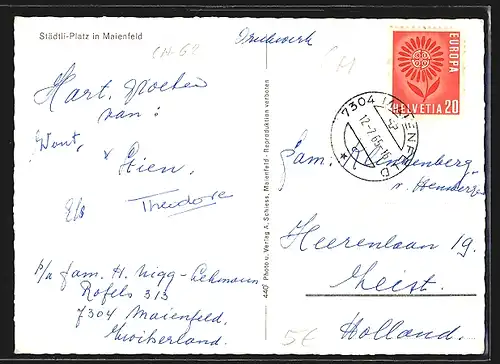 Städtli-Platz in Maienfeld
CH-68
Drukwerk
CH
EUROPA
HELVETIA 20
7304 MAIENFELD
12-7.65-16
Hart. groeten
van:
Wout, x
Stien.
Theodore
p/a fam. H. Nigg-Lehmann
Rofels 313
7304 Maienfeld.
Zwitserland.
4407 Photo u. Verlag A. Schiess, Maienfeld - Reproduktion verboten
Fam.
v. Henwerden
Heerenlaan 19.
Zeist.
5€
Holland.